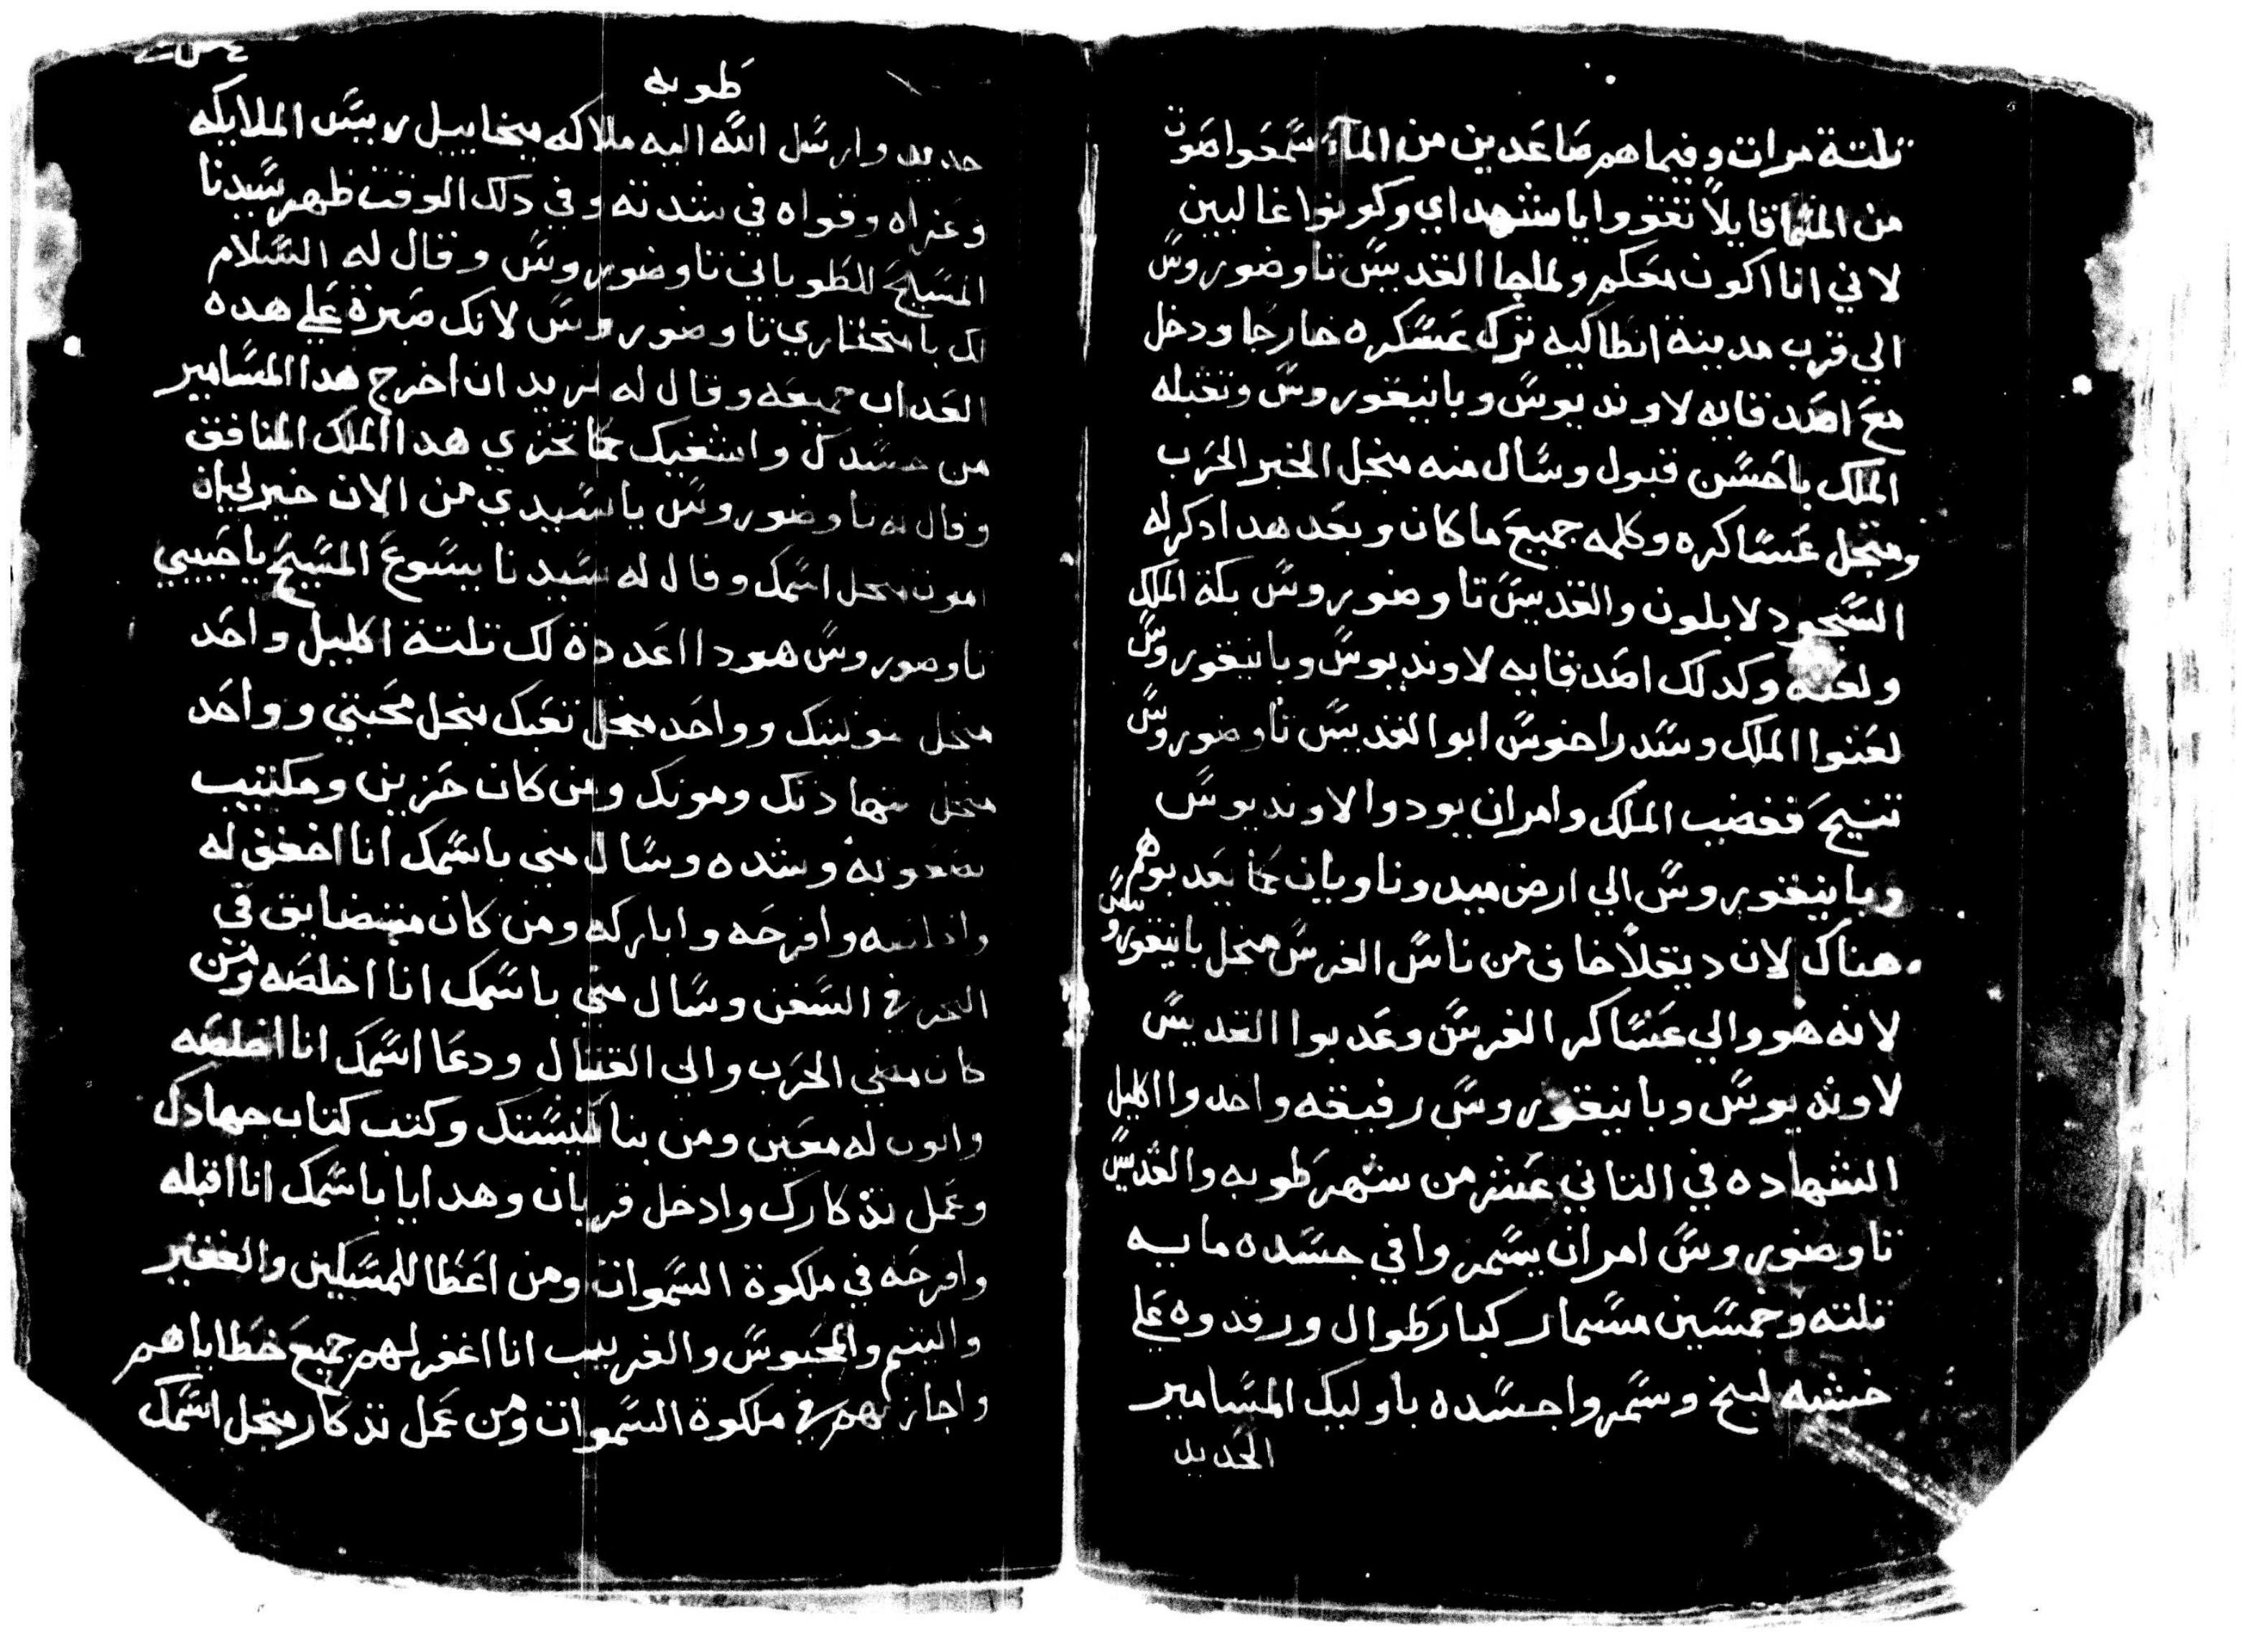 تلتة مرات وفيما هم صاعدين من الماء سمعوا صوت
من السما قايلاً تقووا يا شهداي وكونوا غالبين
لاني انا اكون معكم ولما جا القديس تاوضوروس
الي قرب مدينة انطاكيه ترك عسكره خارجا ودخل
مع اصدقايه لاونديوس وبانيقوروس وتقبله
الملك باحسن قبول وسال منه منجل الخبر الحرب
ومنجل عساكره وكلمه جميع ما كان وبعد هدا دكر له
السجود لابلون والقديس تاوضوروس بكة الملك
ولعنه وكدلك اصدقايه لاونديوس وبانيقوروس
لعنوا الملك وسدراخوس ابو القديس تاوضوروس
تنيح فغضب الملك وامر ان يودوا لاونديوس
وبانيقوروس الي ارض ميدوناويان كما يعدبوهم
هناك لان ديقلا خاف من ناس الفرس منجل بانيقوروس
لانه هو والي عساكر الفرس وعدبوا القديس
لاونديوس وبانيقوروس رفيقه واخدوا اكليل
الشهاده في التاني عشر من شهر طوبه والقديس
تاوضوروس امر ان يسمروا في جسده مايه
تلته وخمسين مسمار كبار طوال ورقدوه علي
خشبه لبخ وسمروا جسده باوليك المسامير
الحديد
طوبه
حديد وارسل الله اليه ملاكه ميخاييل رييس الملايكه
وعزاه وقواه في شدته وفي دلك الوقت ظهر سيدنا
المسيح للطوباني تاوضوروس وقال له السلام
لك يا مختاري تاوضوروس لانك صبرة علي هده
العداب جميعه وقال له تريد ان اخرج هدا المسامير
من جسدك واشفيك كما تخزي هدا الملك المنافق
وقال له تاوضوروس يا سيدي من الان خير لي ان
اموت منجل اسمك وقال له سيدنا يسوع المسيح يا حبيبي
تاوضوروس هودا اعددة لك تلتة اكليل واحد
منجل بتوليتك وواحد منجل تعبك منجل محبتي وواحد
منجل شهادتك وموتك ومن كان حزين ومكتيب
بصعوبه وشده وسال مني باسمك انا اخفف له
واخلصه وافرحه واباركه ومن كان متضايق في
البحر في السفن وسال مني باسمك انا اخلصه ومن
كان مضي الحرب والي القتال ودعا اسمك انا اخلصه
واكون له معين ومن بنا كنيستك وكتب كتاب جهادك
وعمل تذكارك وادخل قربان وهدايا باسمك انا اقبله
وافرحه في ملكوة السموات ومن اعطا للمسكين والفقير
واليتيم والمحبوس والغريب انا اغفر لهم جميع خطاياهم
واجازيهم في ملكوة السموات ومن عمل تذكار منجل اسمك